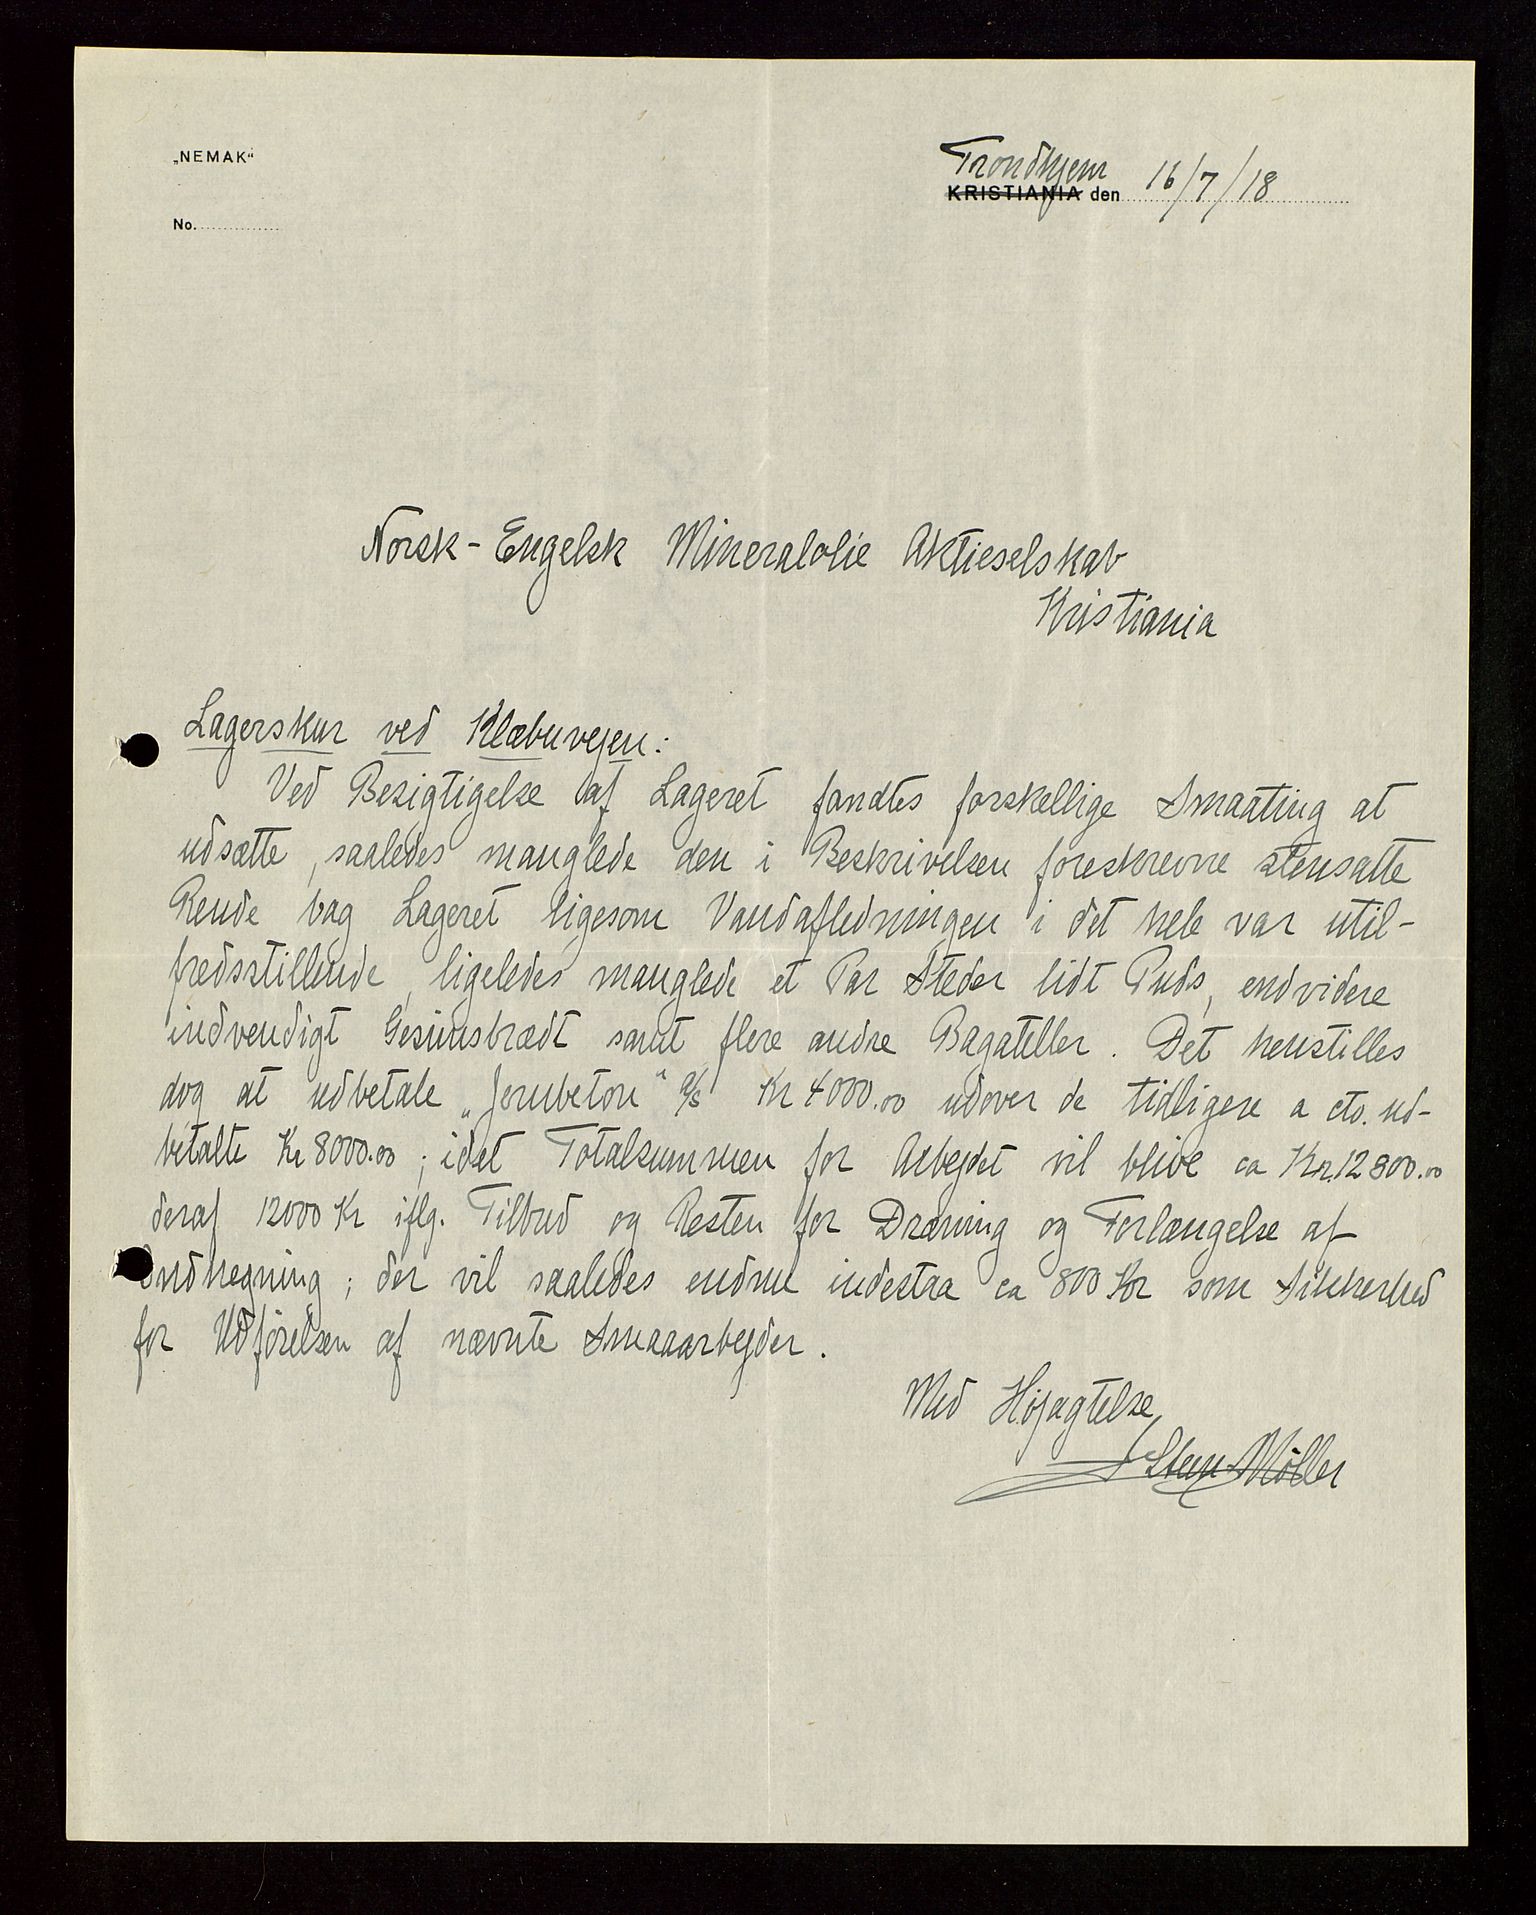 „NEMAK“
Trondhjem
KRISTIANIA den 16/7/18
No.
Norsk-Engelsk Mineralolie Aktieselskab
Kristiania
Lagerskur ved Klæbuvejen:
Ved Besigtigelse af Lageret fandtes forskellige Smaating at
udsætte, saaledes manglede den i Beskrivelsen foreskrevne stensatte
Rende bag Lageret ligesom Vandafledningen i det hele var util-
fredsstillende, ligeledes manglede et Par Steder lidt Puds, endvidere
indvendigt Gesimsbrædt samt flere andre Bagateller. Det henstilles
dog at udbetale „Jernbeton“ A/S Kr 4000.00 udover de tidligere a cto. ud-
betalte Kr 8000.00; idet Totalsummen for Arbejdet vil blive ca Kr. 12800.00
deraf 12000 Kr iflg. Tilbud og Resten for Dræning og Forlængelse af
Indhegning; der vil saaledes endnu indestaa ca 800 Kr som Sikkerhed
for Udførelsen af nævnte Smaaarbejder.
Med Højagtelse
Steen Möller